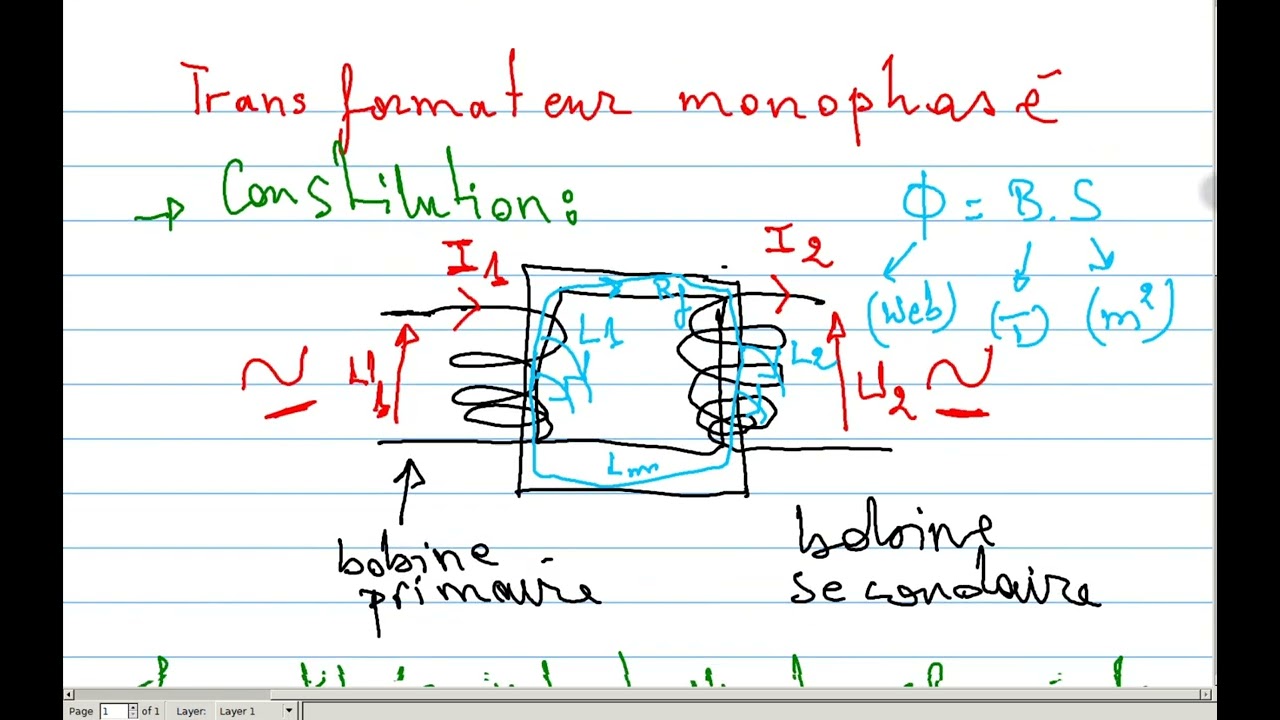 Transformateur monophasé
→ Constitution:
Φ = B.S
(Web) (T) (m²)
I1
I2
Rf
L1
L2
U1
U2
Lm
bobine primaire
bobine secondaire
Page 1 of 1 Layer: Layer 1